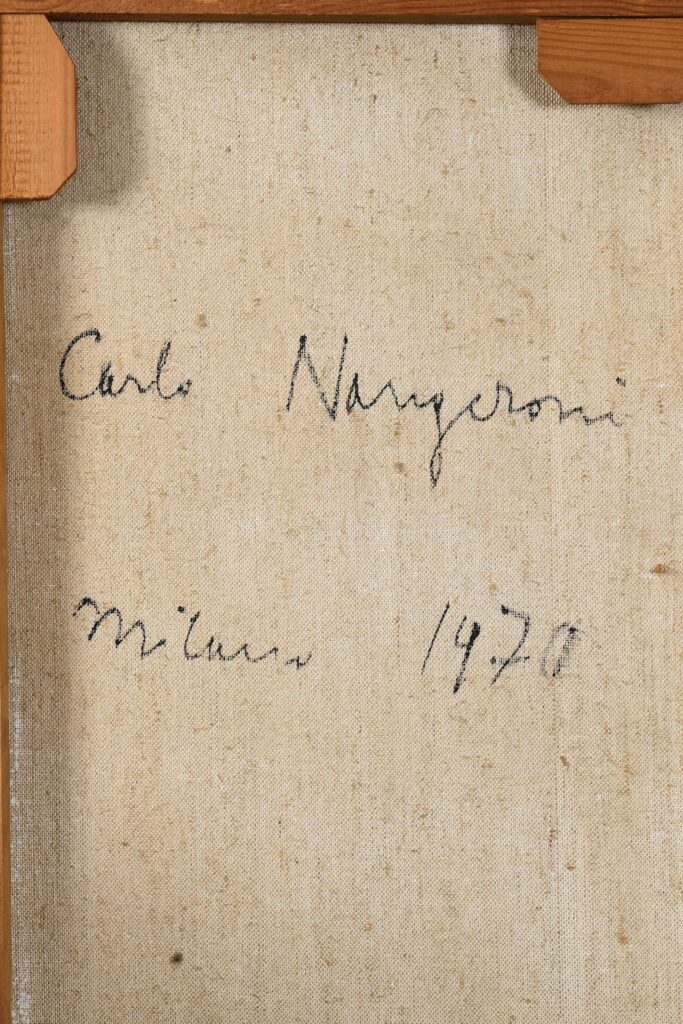 Carlo Nangeroni
Milano 1970